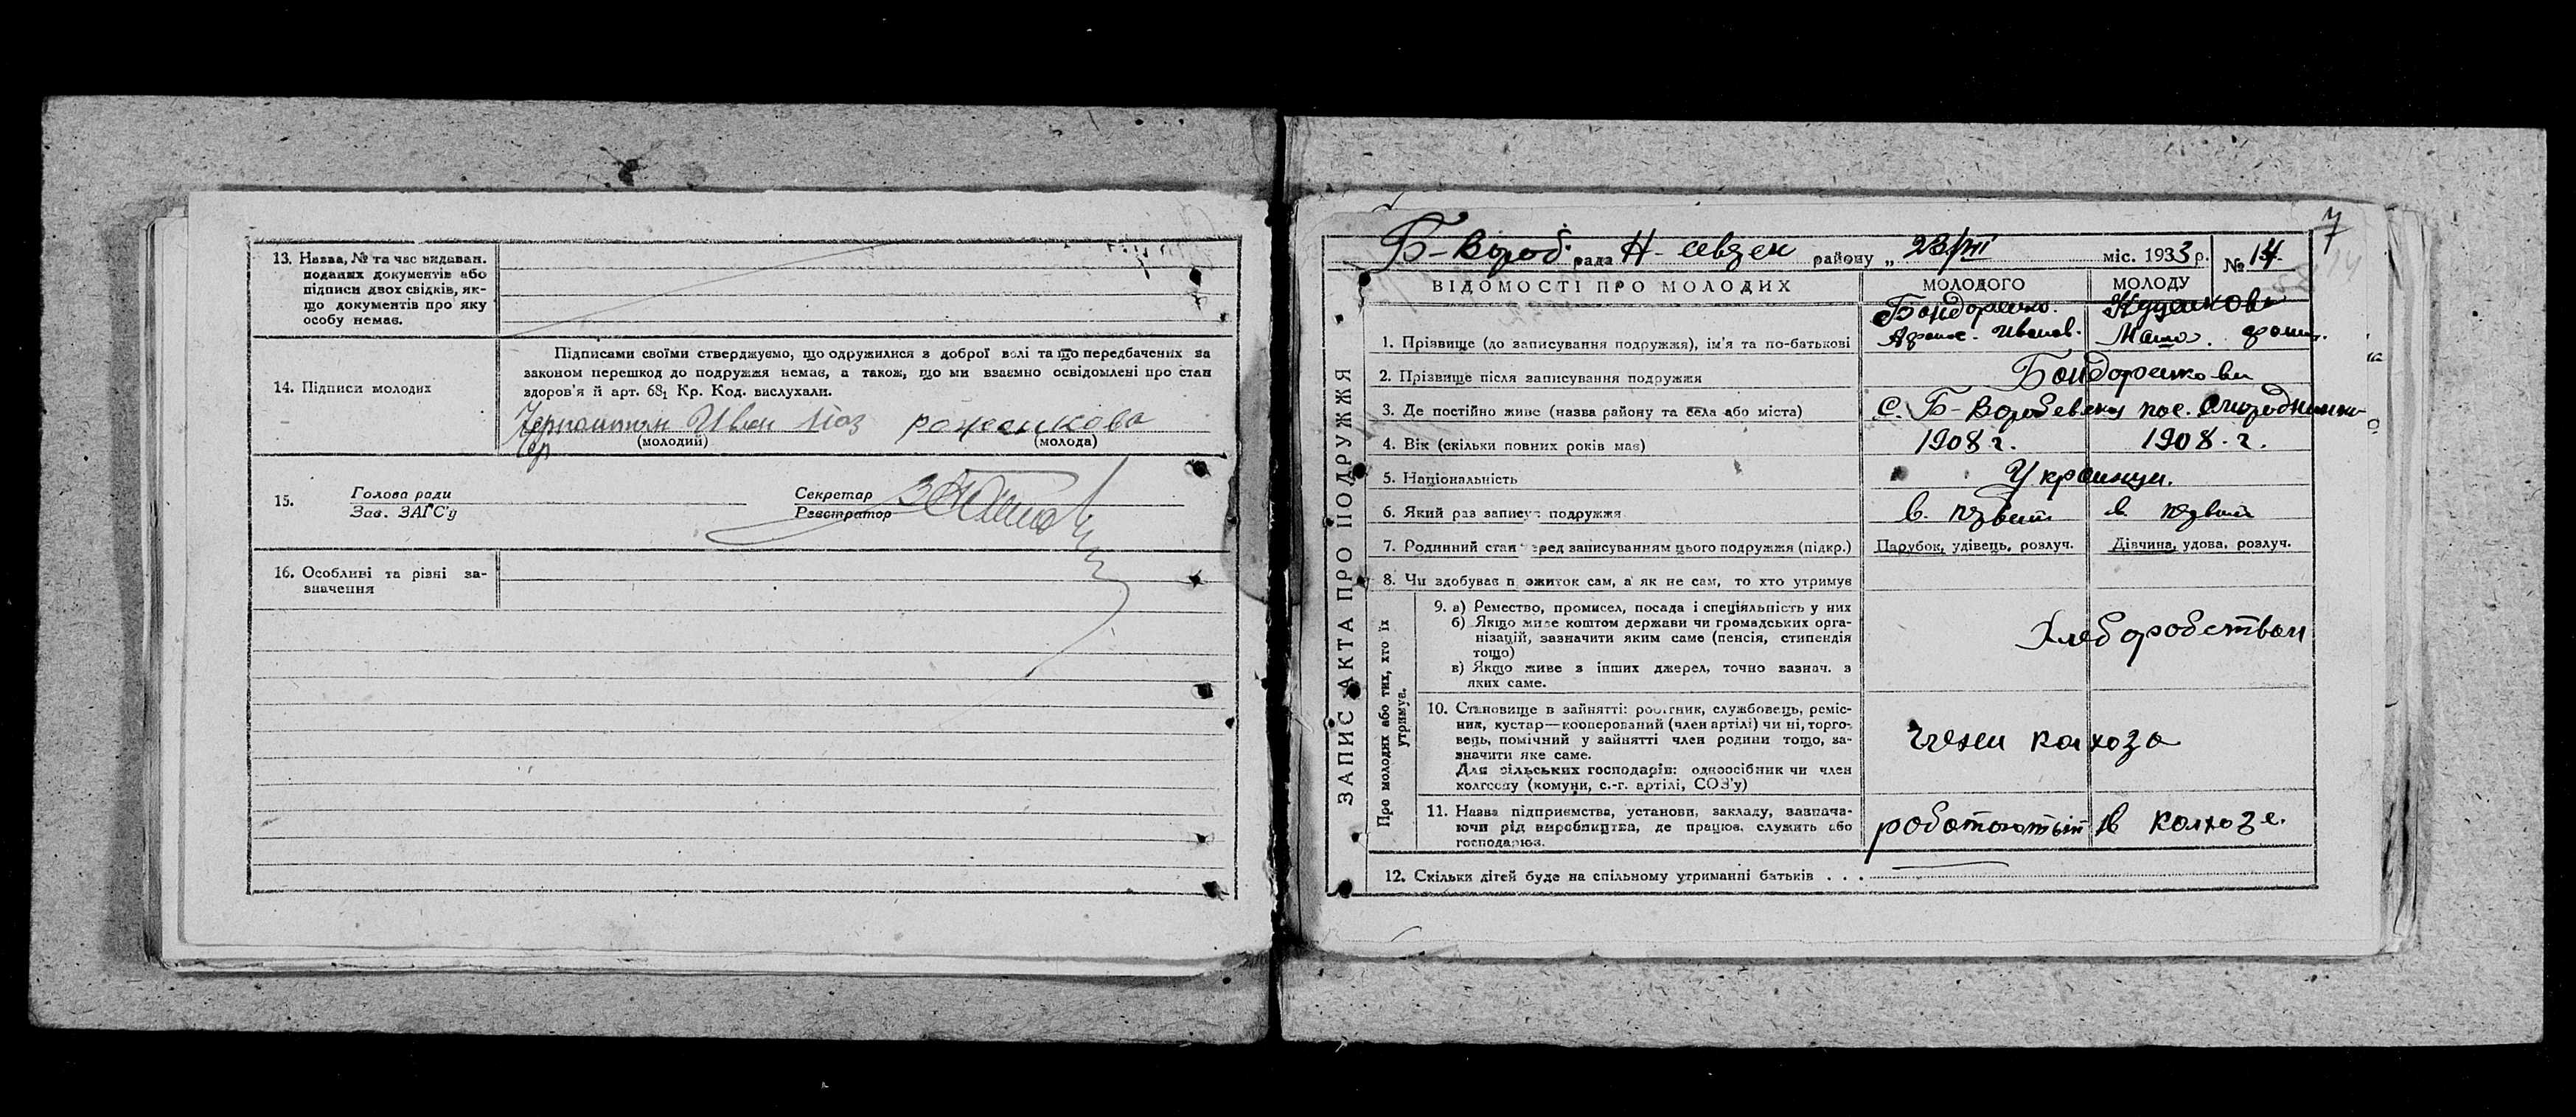 13. Назва, № та час видаван.
поданих документів або
підписи двох свідків, як-
що документів про яку
особу немає.
14. Підписи молодих
Підписами своїми стверджуємо, що одружилися з доброї волі та що передбачених за
законом перешкод до подружжя немає, а також, що ми взаємно освідомлені про стан
здоров'я й арт. 68₁ Кр. Код. вислухали.
Иван
(молодий) (молода)
15. Голова ради
Зав. ЗАГС'у
Секретар
Реєстратор
16. Особливі та різні за-
значення
7
Б-Вороб. рада Н- району „ 23/VII міс. 1933 р. № 14
ЗАПИС АКТА ПРО ПОДРУЖЖЯ
ВІДОМОСТІ ПРО МОЛОДИХ МОЛОДОГО МОЛОДУ
Бондоренко.
1. Прізвище (до записування подружжя), ім'я та по-батькові Афонас. Иванов.
2. Прізвище після записування подружжя Бондоренкови
3. Де постійно живе (назва району та села або міста) С. Б-Воробевский пос.
4. Вік (скільки повних років має) 1908 г. 1908. г.
5. Національність Украинци.
6. Який раз записує подружжя в. в.
7. Родинний стан перед записуванням цього подружжя (підкр.) Парубок, удівець, розлуч. Дівчина, удова, розлуч.
8. Чи здобуває п ожиток сам, а як не сам, то хто утримує
Про молодих або тих, хто їх
утримує.
9. а) Ремество, промисел, посада і спеціяльність у них
б) Якщо живе коштом держави чи громадських орга-
нізацій, зазначити яким саме (пенсія, стипендія
тощо)
в) Якщо живе з інших джерел, точно зазнач. з
яких саме.
Хлеборобством
10. Становище в зайнятті: робітник, службовець, реміс-
ник, кустар—кооперований (член артілі) чи ні, торго-
вець, помічний у зайнятті член родини тощо, за-
значити яке саме.
Для сільських господарів: одноосібник чи член
колгоспу (комуни, с.-г. артілі, СОЗ'у)
колхоза
11. Назва підприємства, установи, закладу, зазнача-
ючи рід виробництва, де працює, служить або
господарює.
роботоють в колхозе.
12. Скільки дітей буде на спільному утриманні батьків . . .